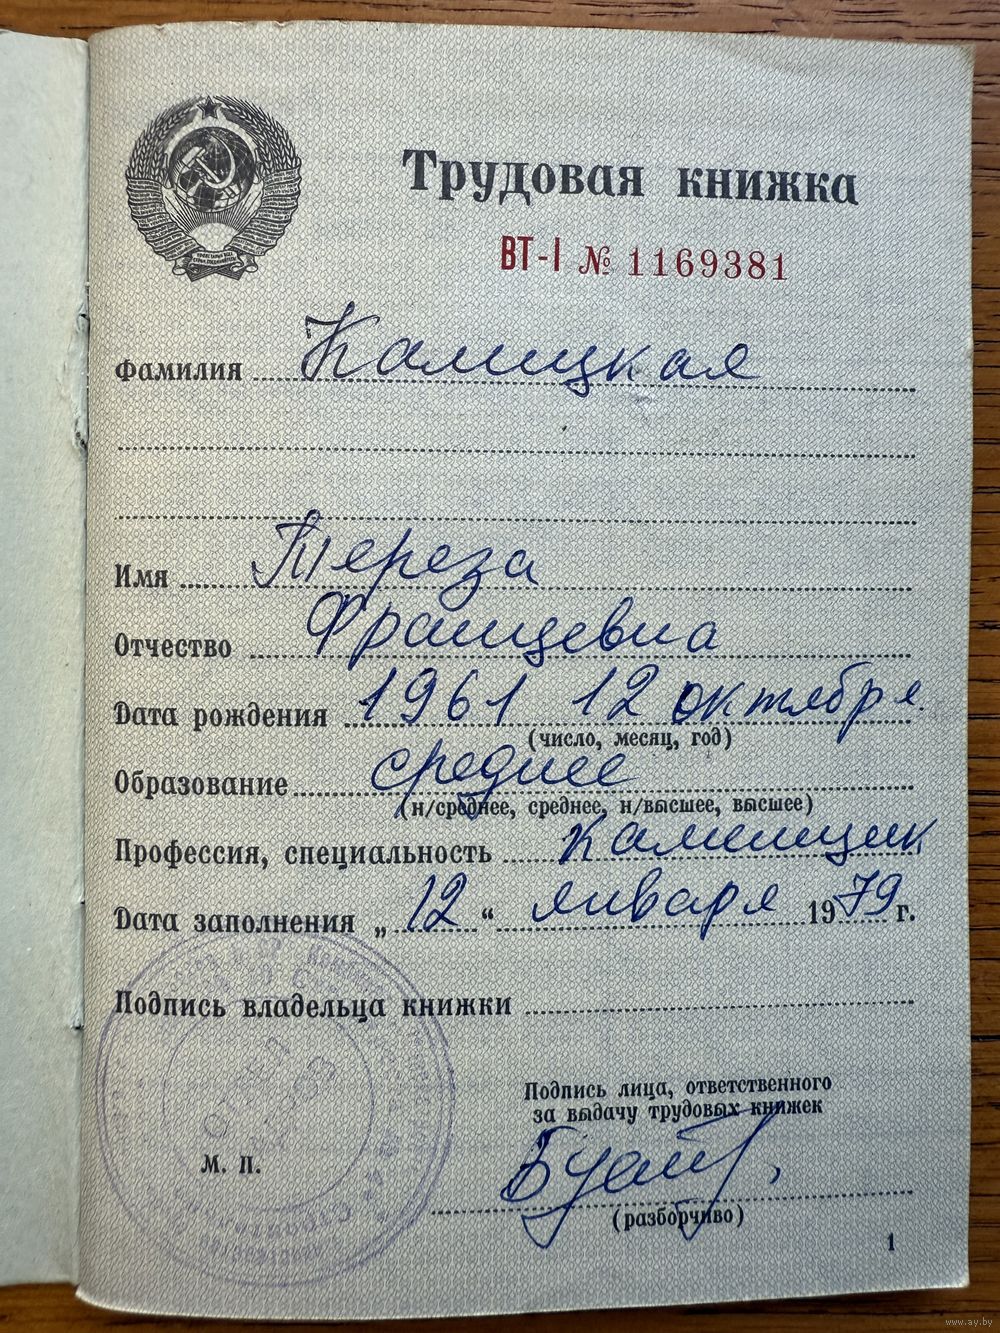 Трудовая книжка
ВТ-I № 1169381
Фамилия Камицкая
Имя Тереза
Отчество Францевна
Дата рождения 1961 12 октября.
(число, месяц, год)
Образование среднее
(н/среднее, среднее, н/высшее, высшее)
Профессия, специальность каменщик
Дата заполнения „12“ января 1979 г.
Подпись владельца книжки
Подпись лица, ответственного
за выдачу трудовых книжек
М. П.
(разборчиво)
1
www.ay.by